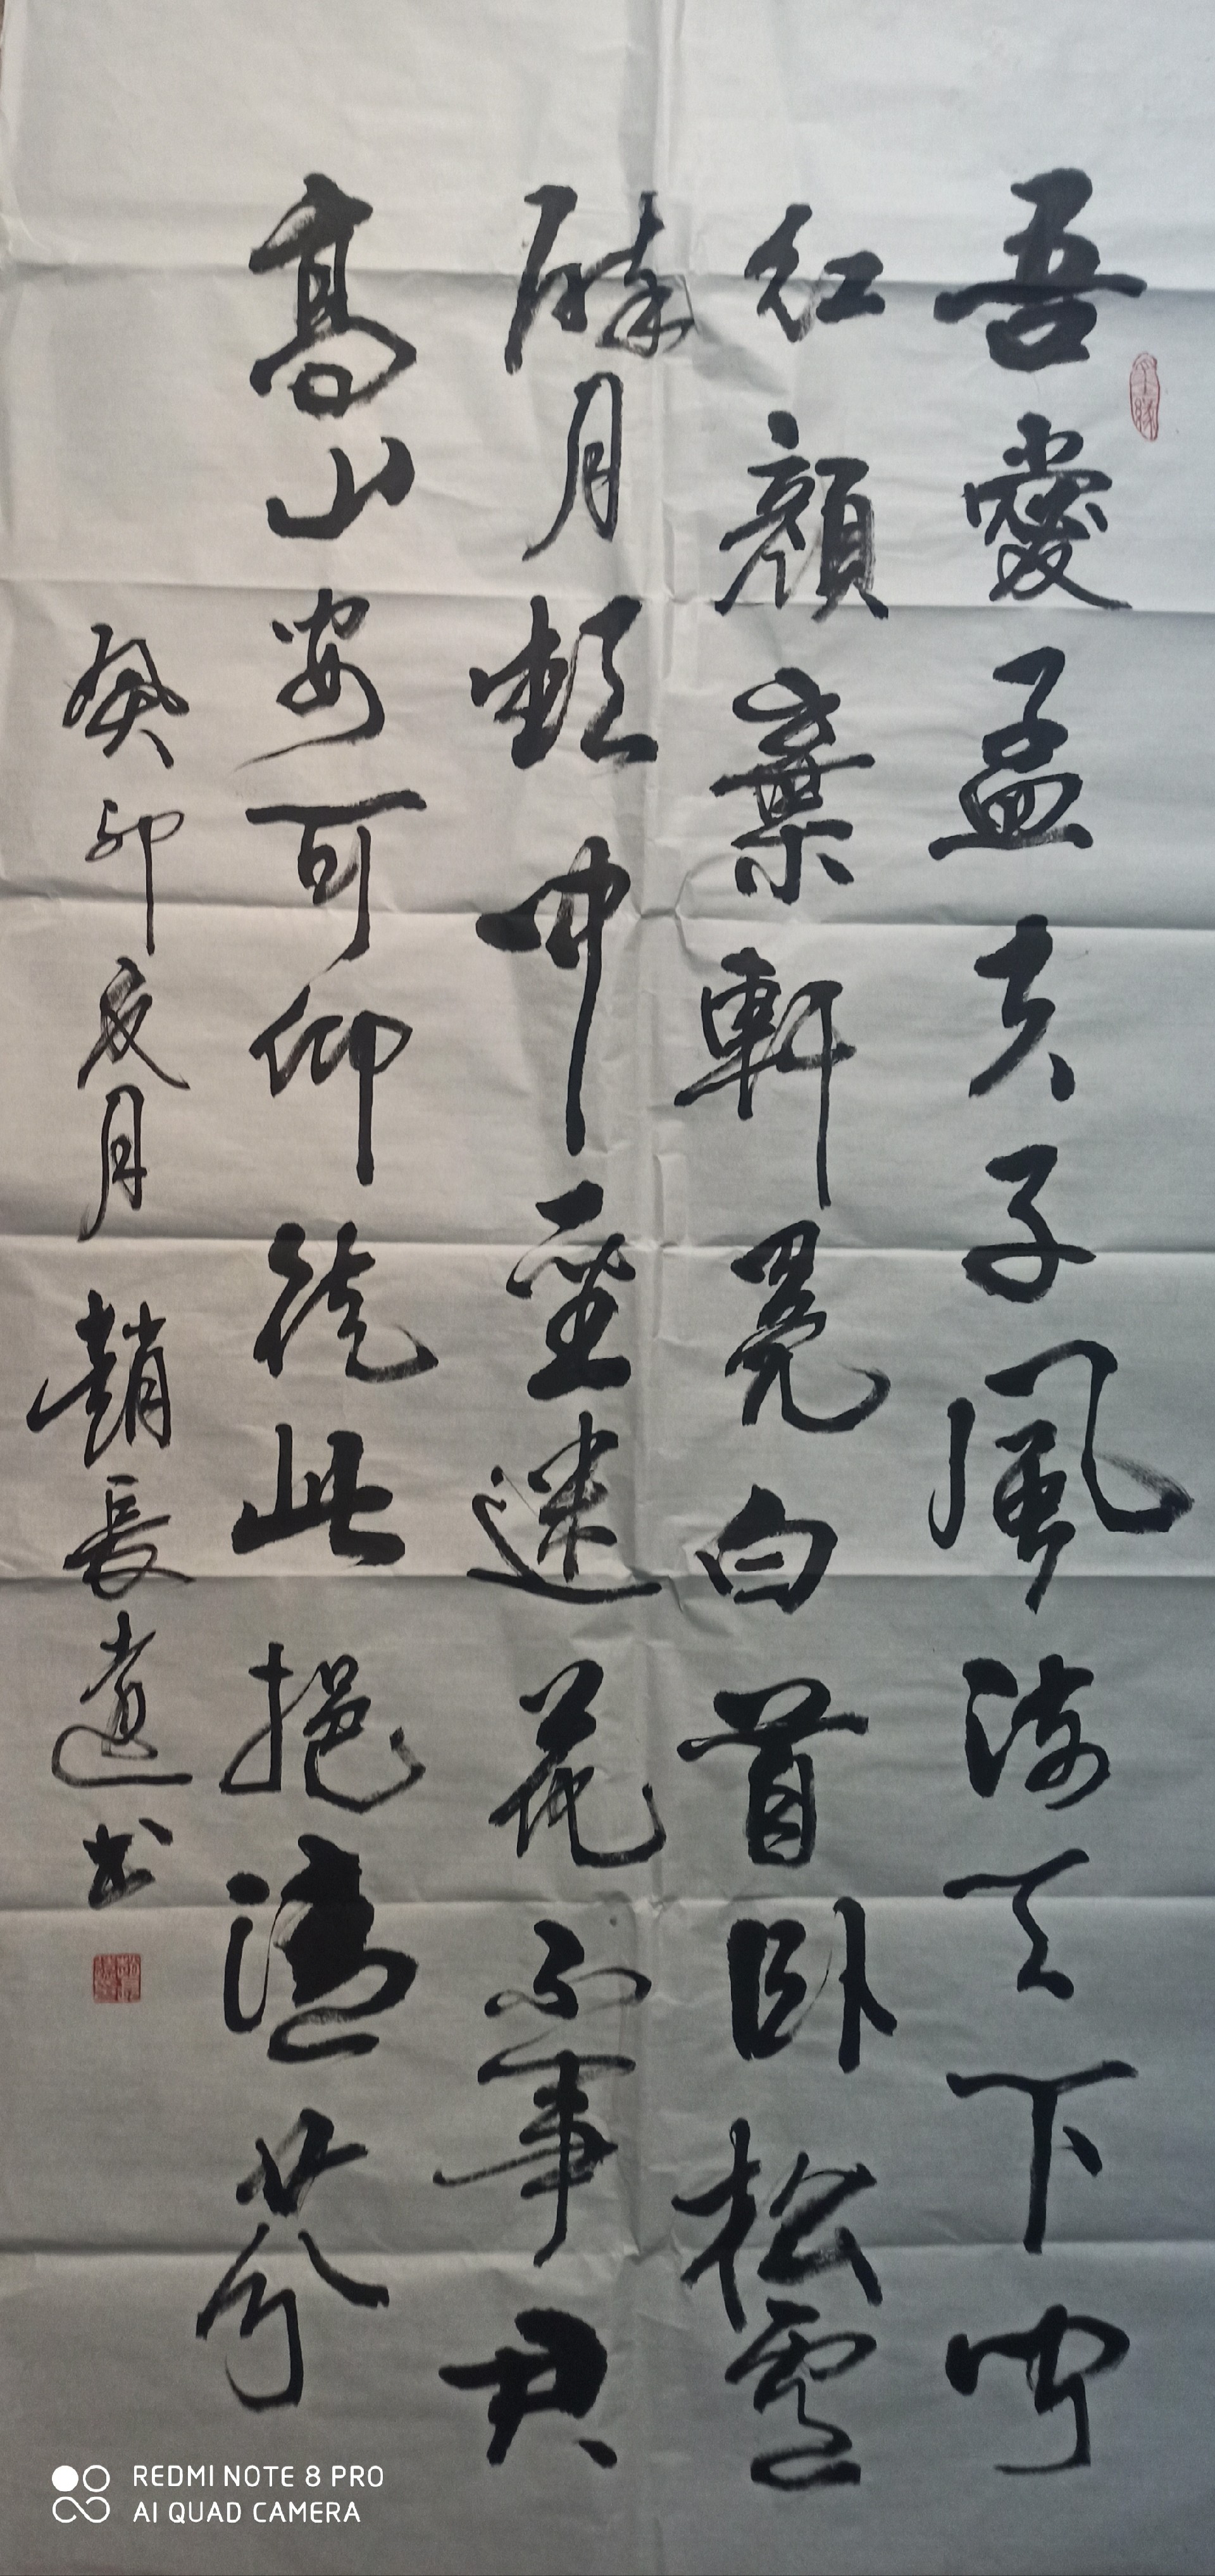 吾愛孟夫子風流天下聞
紅顏棄軒冕白首臥松雲
醉月頻中聖迷花不事君
高山安可仰徒此挹清芬
癸卯月 趙長書
REDMI NOTE 8 PRO
AI QUAD CAMERA